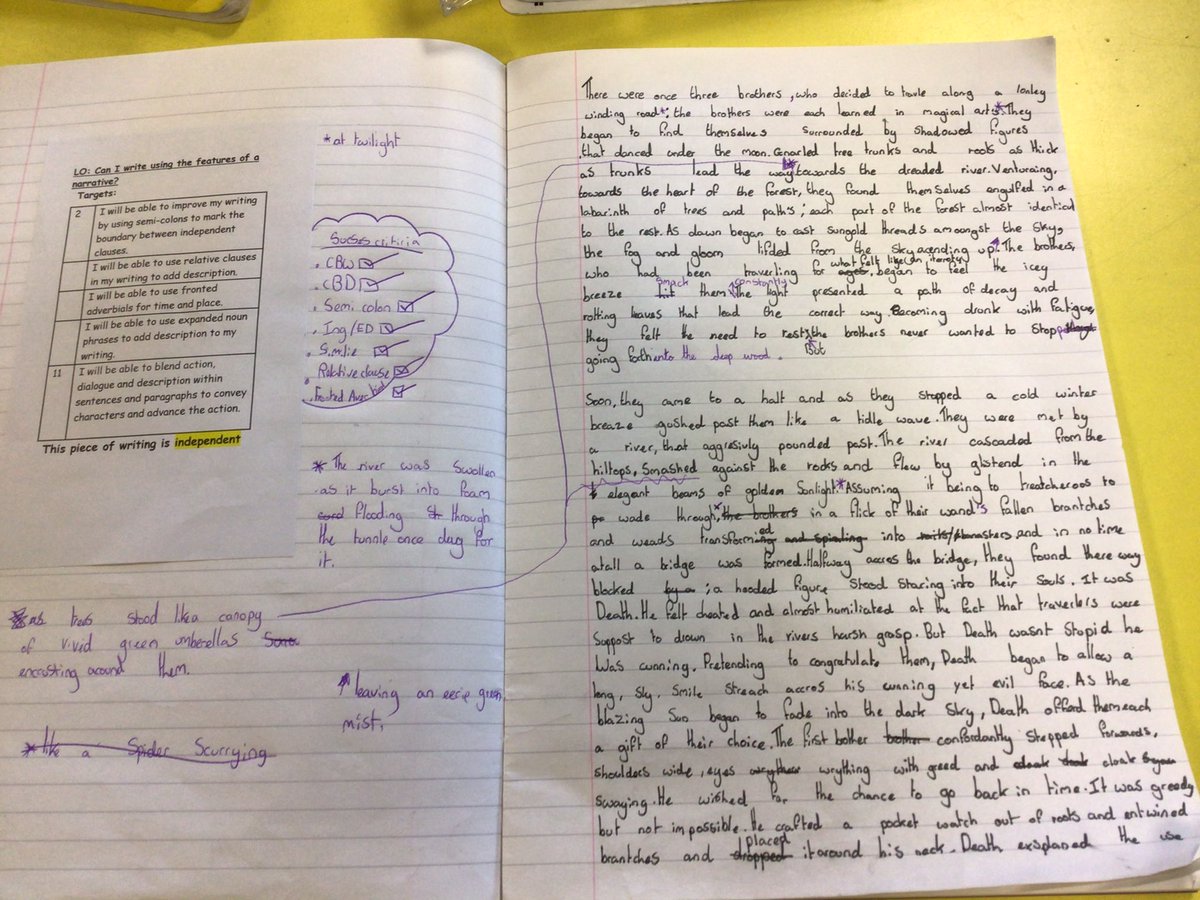 LO: Can I write using the features of a
narrative?
Targets:
2 I will be able to improve my writing
by using semi-colons to mark the
boundary between independent
clauses.
I will be able to use relative clauses
in my writing to add description.
I will be able to use fronted
adverbials for time and place.
I will be able to use expanded noun
phrases to add description to my
writing.
11 I will be able to blend action,
dialogue and description within
sentences and paragraphs to convey
characters and advance the action.
This piece of writing is independent
*at twilight
Sucses critiria
CBW
CBD
Semi colon
Ing/ED
Simlie
Relative clause
Fronted Aver bial
* The river was swollen
as it burst into foam
flooding through
the tunnle once dug for
it.
*as trees stood like a canopy
of vivid green umberellas
encrusting around them.
leaving an eerie green
mist,
*like a Spider Scurrying
There were once three brothers, who decided to travle along a lonley
winding road*; the brothers were each learned in magical arts. They
began to find themselves surrounded by shadowed figures
that danced under the moon. Gnarled tree trunks and roots as thick
as trunks lead the way* towards the dreaded river. Venturaing,
towards the heart of the forest, they found themselves engulfed in a
labarinth of trees and path's; each part of the forest almost identical
to the rest. As dawn began to cast sungold threads amoungst the sky,
the fog and gloom lifded from the sky acending up. The brothers,
who had been traverling for ages, what felt like an iternity began to feel the icey
breeze hit smack them constantly. The light presented a path of decay and
rotting leaves that lead the correct way. Becoming drunk with fatigue,
they felt the need to rest; But the brothers never wanted to stop
going forth onto the deep wood.
Soon, they came to a halt and as they stopped a cold winter
breaze gushed past them like a tidle wave. They were met by
a river, that aggresivly pounded past. The river cascaded from the
hilltops, smashed against the rocks and flew by glistend in the
elegant beams of golden sonlight.* Assuming it being to treatcheroos to
wade through, the brothers in a flick of their wand's fallen brantches
and weads transforming ed and into and in no time
atall a bridge was formed. Halfway accres the bridge, they found there way
blocked by a ; a hooded figure stood staring into their souls. It was
Death. He felt cheated and almost humiliated at the fact that traverlers were
soppost to drown in the rivers harsh grasp. But Death wasnt stupid he
was cunning. Pretending to congratulate them, Death began to allow a
long, sly, smile streach accros his cunning yet evil face. As the
blazing sun began to fade into the dark sky, Death offerd them each
a gift of their choice. The first bother bother confordantly stepped forwards,
shoulders wide, eyes wrything with greed and cloak
swaying. He wished for the chance to go back in time. It was greedy
but not impossible. He crafted a pocket watch out of roots and entwined
brantches and dropped placed it around his neck. Death explaned the use